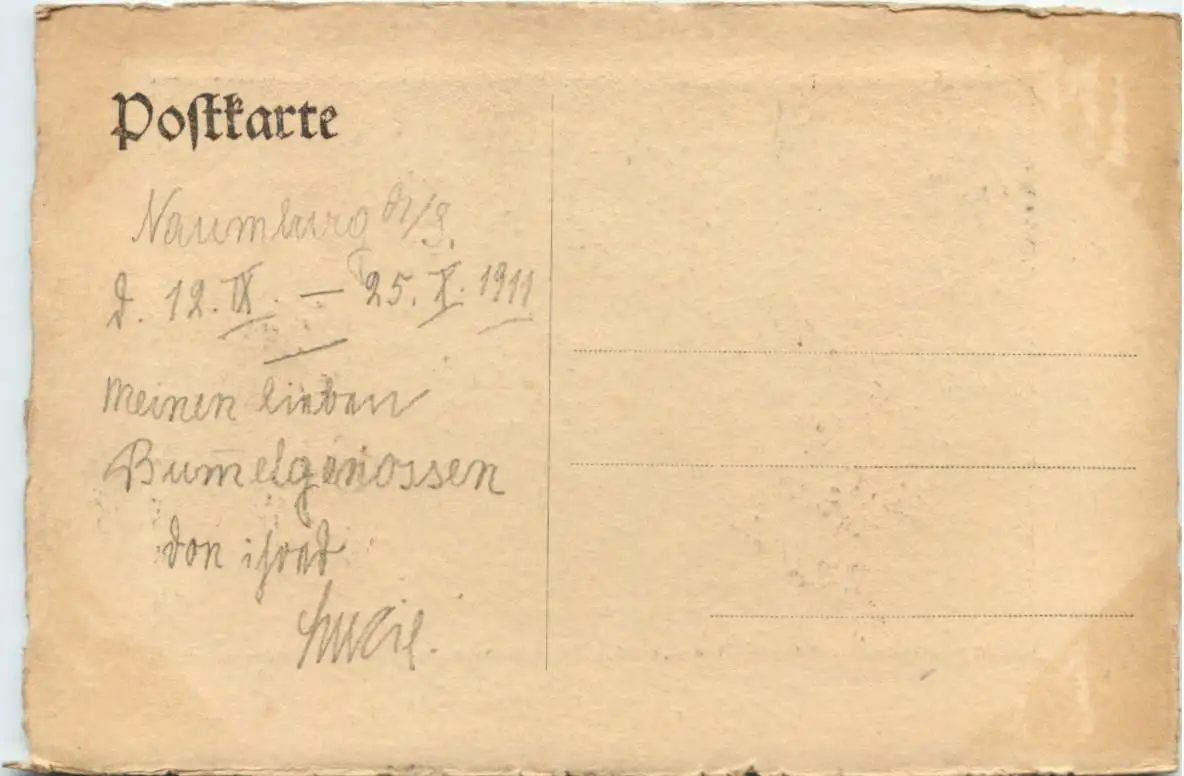 Postkarte
Naumburg a/S.
d. 12. IX. — 25. X. 1911
Meinen lieben
Bum̄elgenossen
von ihrer